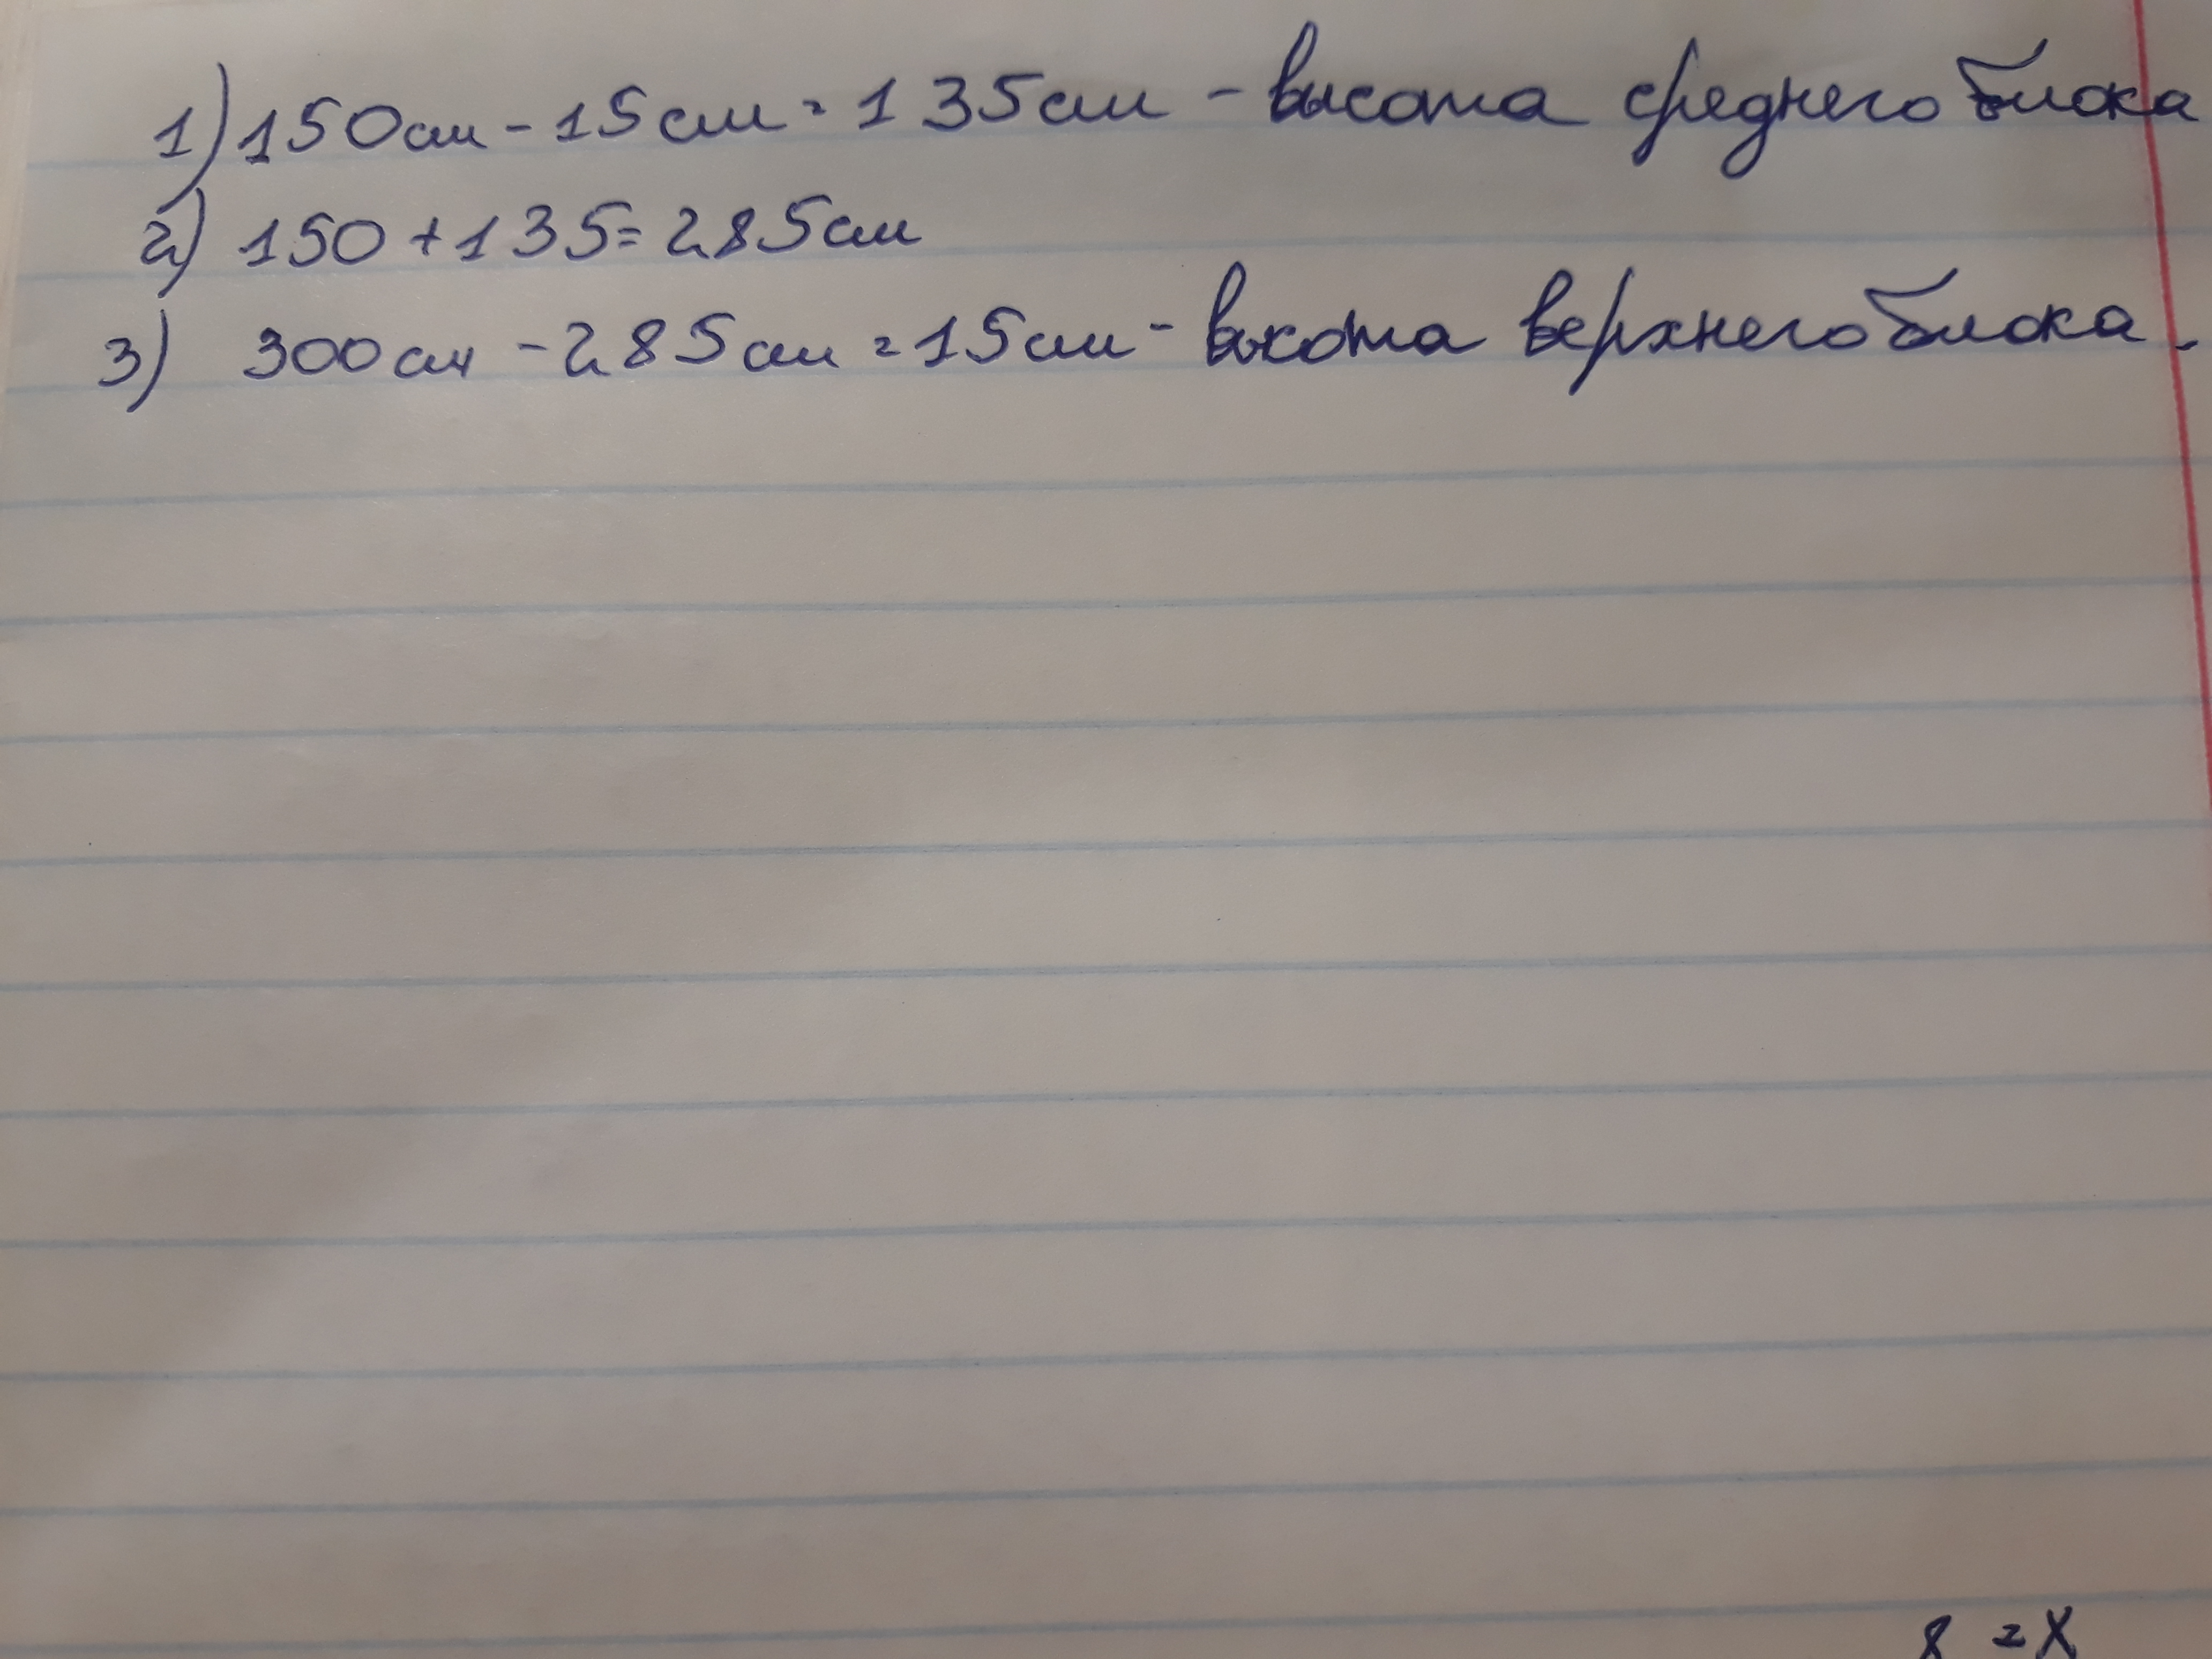 1) 150см - 15см = 135см - высота среднего блока
2) 150 + 135 = 285см
3) 300см - 285см = 15см - высота верхнего блока.
8 = X